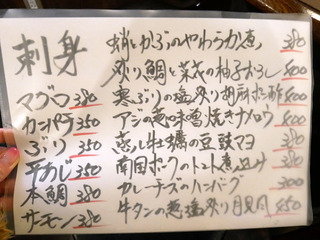 刺身
マグロ 380
カンパチ 350
ぶり 350
平あじ 350
本鯛 380
サーモン 380
蛸とかぶのやわらか煮 380
炙り鯛と菜花の柚子おろし 500
寒ぶりの塩炙り 500
アジの葱味噌焼きナメロウ 500
蒸し牡蠣の豆豉マヨ 380
南国ポークのトマト煮込み 380
カレーチーズのハンバーグ 300
牛タンの葱塩炙り月見 450